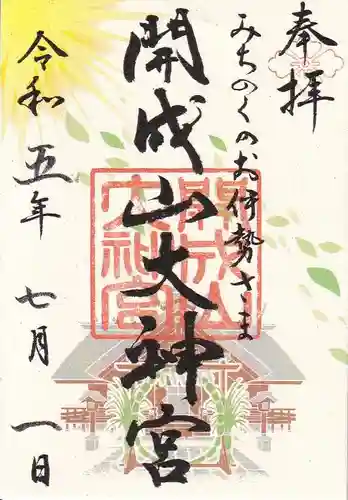 奉拝
みちのくのお伊勢さま
開成山大神宮
開成山
大神宮
令和五年七月一日